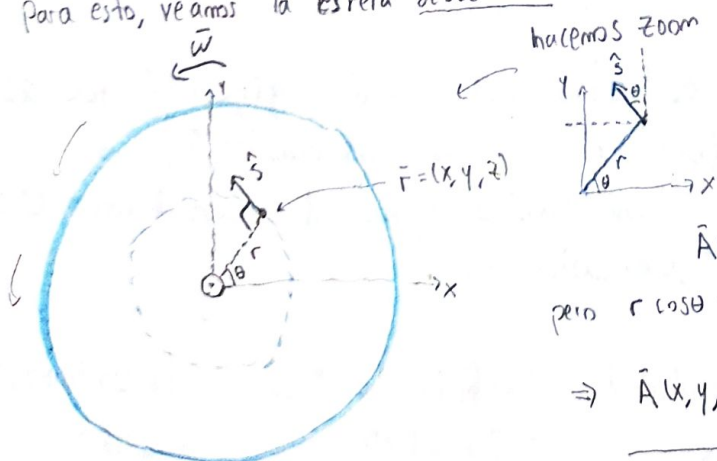 Para esto, veamos la esfera
hacemos zoom
ω̄
Y
ŝ
r
θ
x
r̄=(x,y,z)
Y
ŝ
θ
r
θ
x
Ā
pero r cosθ
⇒ Ā(x,y,